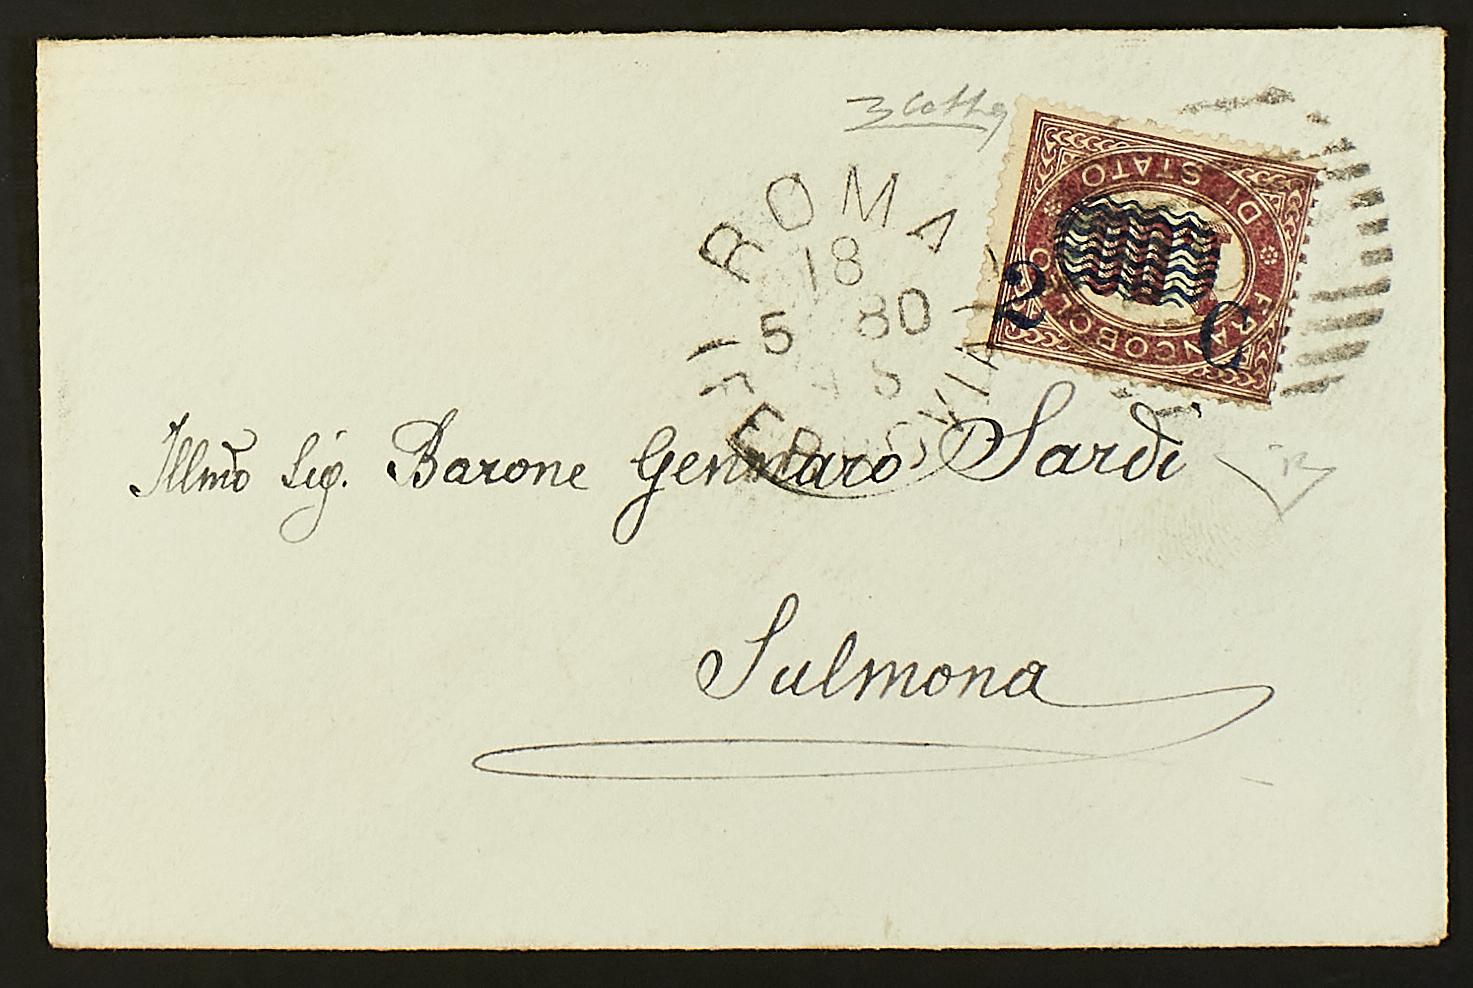 ROMA
18
5 80
FERROVIA
FRANCOBOLLO DI STATO
2 C
Illmo Sig. Barone Gennaro Sardi
Sulmona